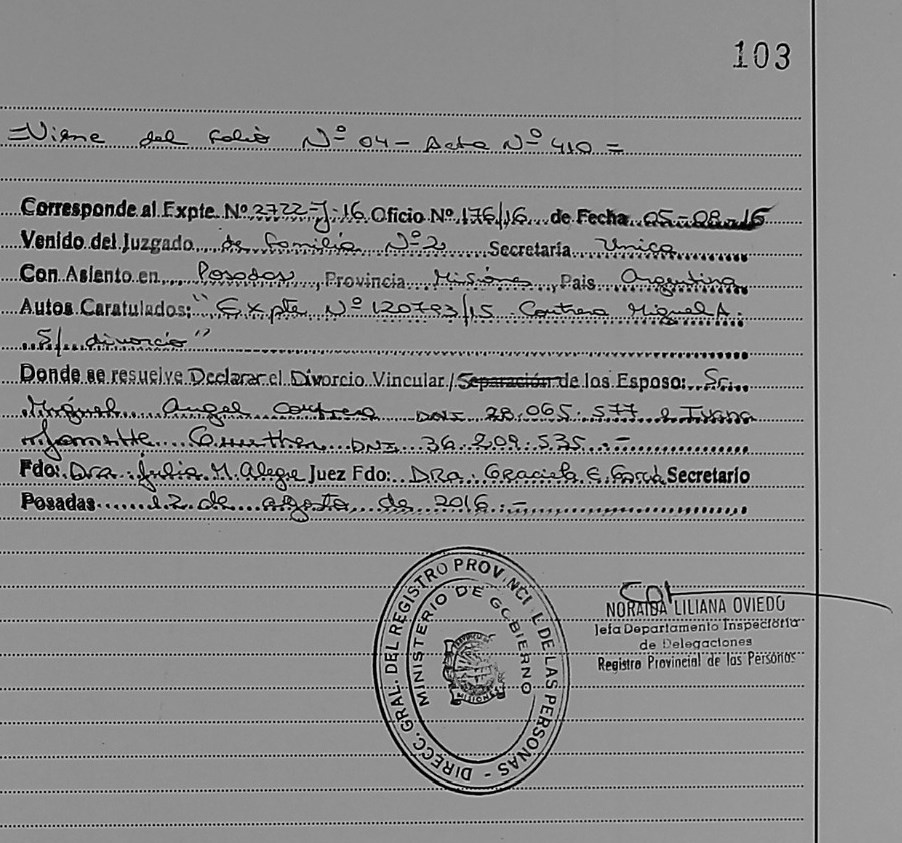 103
=Viene del folio Nº 04 - Acta Nº 410 =
Corresponde al Expte. Nº 2722-J-16 Oficio Nº 176/16 de Fecha 05-08-16
Venido del Juzgado de Familia Nº 2 Secretaría Unica
Con Asiento en Posadas, Provincia Misiones, Pais Argentina
Autos Caratulados: "Expte Nº 120793/15 Contrera Miguel A.
S/ divorcio"
Donde se resuelve Declarar el Divorcio Vincular/Separación de los Esposo: Sr.
Miguel Angel Contrera DNI 28.065.577 e Ivana
DNI 36.209.535.-
Fdo: Dra. Julia M. Alegre Juez Fdo: DRA. Graciela E. Secretario
Posadas 12 de agosto de 2016.-
DIRECC. GRAL. DEL REGISTRO PROVINCIAL DE LAS PERSONAS -
MINISTERIO DE GOBIERNO
MISIONES
NORAIDA LILIANA OVIEDO
Jefa Departamento Inspectoria
de Delegaciones
Registro Provincial de las Personas